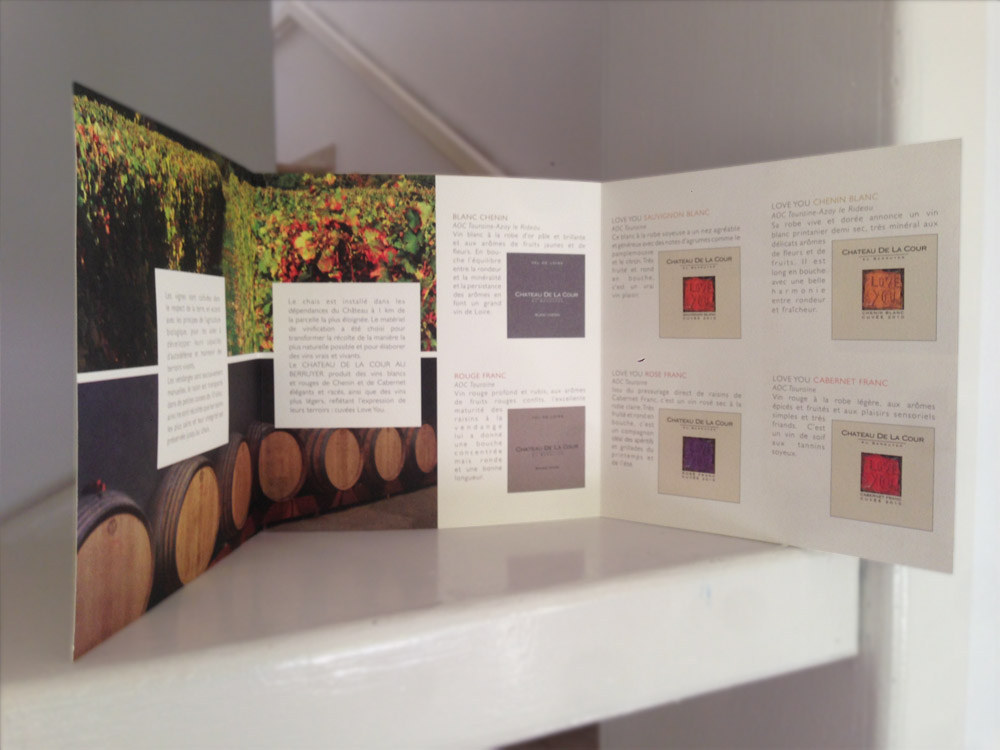 Le chais est installé dans les
dépendances du Château à 1 km de
la parcelle la plus éloignée. Le matériel
de vinification a été choisi pour
transformer la récolte de la manière la
plus naturelle possible et pour élaborer
des vins vrais et vivants.
Le CHATEAU DE LA COUR AU
BERRUYER, produit des vins blancs
et rouges de Chenin et de Cabernet
élégants et racés, ainsi que des vins
plus légers, reflétant l'expression de
leurs terroirs : cuvées Love You.
BLANC CHENIN
AOC Touraine-Azay le Rideau
Vin blanc à la robe d'or pâle et brillante
et aux arômes de fruits jaunes et de
fleurs. En bou-
che l'équilibre
entre la rondeur
et la minéralité
et la persistance
des arômes en
font un grand
vin de Loire.
VAL DE LOIRE
CHATEAU DE LA COUR
AU BERRUYER
BLANC CHENIN
ROUGE FRANC
AOC Touraine
Vin rouge profond et rubis, aux arômes
de fruits rouges confits, l'excellente
maturité des
raisins à la
vendange
lui a donné
une bouche
concentrée
mais ronde
et une bonne
longueur
VAL DE LOIRE
CHATEAU DE LA COUR
AU BERRUYER
ROUGE FRANC
LOVE YOU SAUVIGNON BLANC
AOC Touraine
Ce blanc à la robe soyeuse a un nez agréable
et généreux avec des notes d'agrumes comme le
pamplemousse
et le citron. Très
fruité et rond
en bouche,
c'est un vrai
vin plaisir.
CHATEAU DE LA COUR
AU BERRUYER
I LOVE
YOU
SAUVIGNON BLANC
CUVÉE 2010
LOVE YOU ROSE FRANC
AOC Touraine
Issu du pressurage direct de raisins de
Cabernet Franc, c'est un vin rosé sec à la
robe claire. Très
fruité et rond en
bouche, c'est
un compagnon
idéal des apéritifs
et grillades du
printemps et
de l'été.
CHATEAU DE LA COUR
AU BERRUYER
ROSE FRANC
CUVÉE 2010
LOVE YOU CHENIN BLANC
AOC Touraine-Azay le Rideau
Sa robe vive et dorée annonce un vin
blanc printanier demi sec, très minéral aux
délicats arômes
de fleurs et de
fruits. Il est
long en bouche
avec une belle
harmonie
entre rondeur
et fraîcheur.
CHATEAU DE LA COUR
AU BERRUYER
I LOVE
YOU
CHENIN BLANC
CUVÉE 2010
LOVE YOU CABERNET FRANC
AOC Touraine
Vin rouge à la robe légère, aux arômes
épicés et fruités et aux plaisirs sensoriels
simples et très
friands. C'est
un vin de soif
aux tannins
soyeux.
CHATEAU DE LA COUR
AU BERRUYER
I LOVE
YOU
CABERNET FRANC
CUVÉE 2010